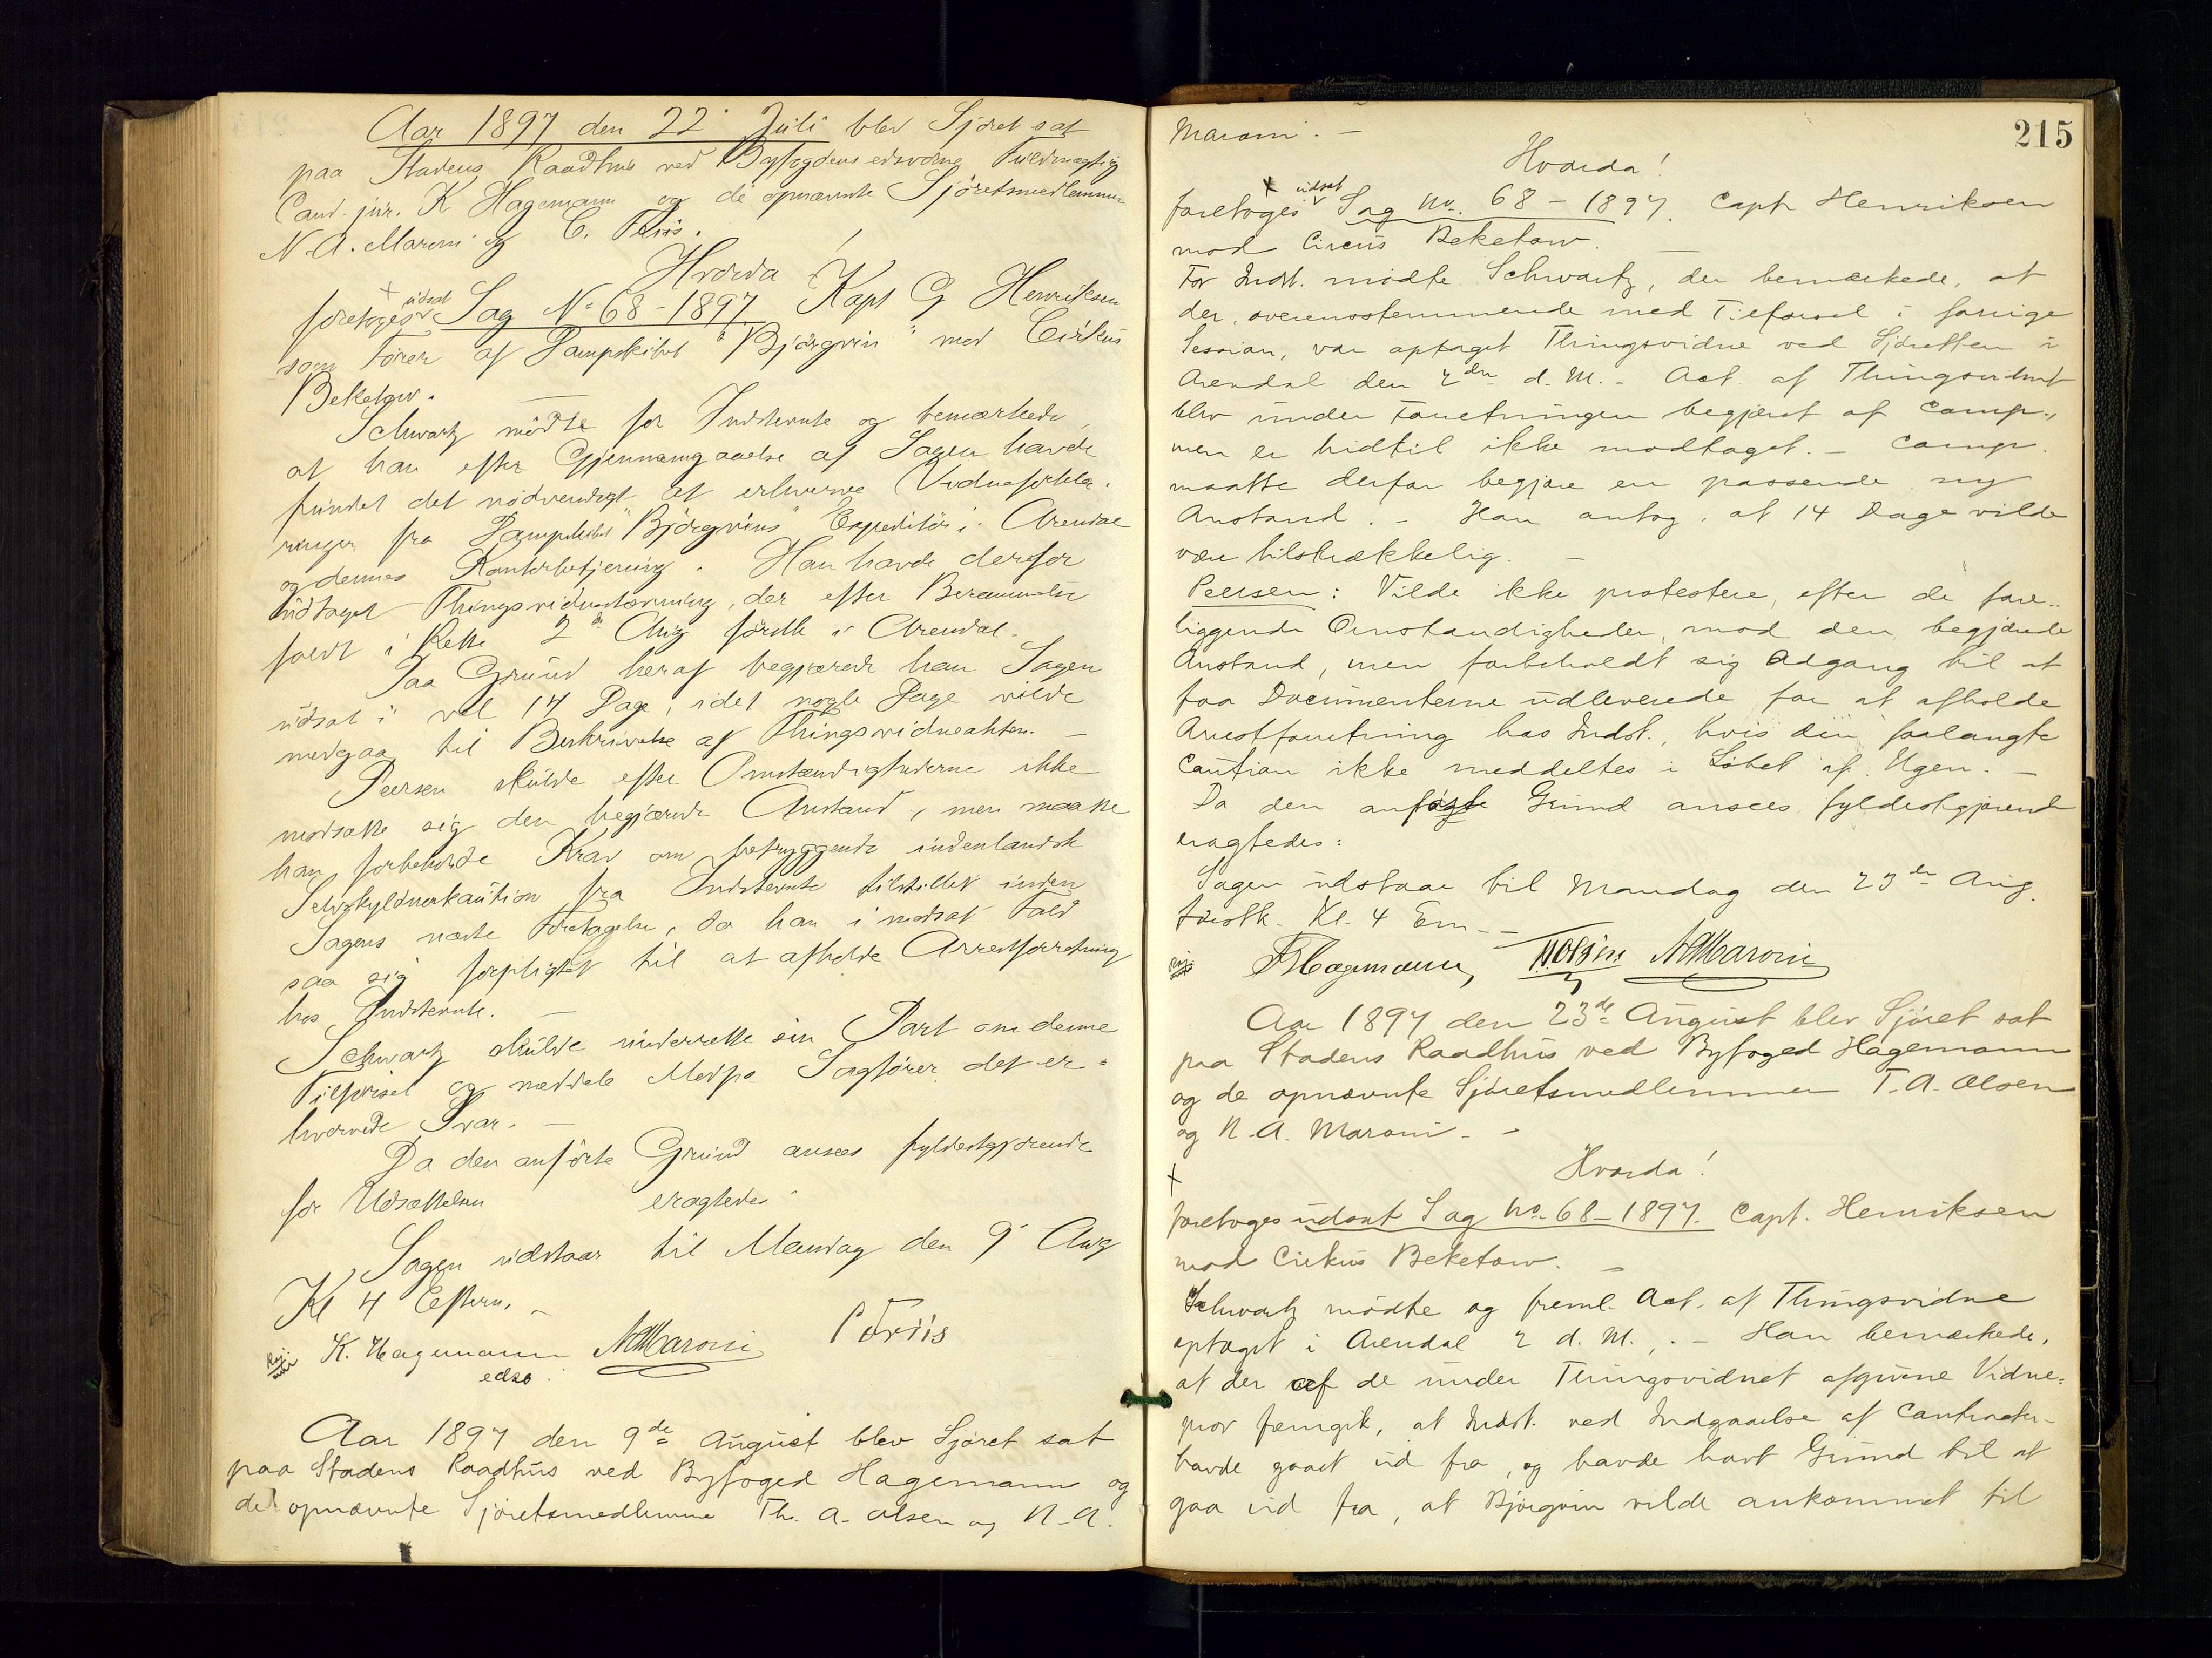 Aar 1897 den 22' Juli blev Sjøret sat
paa Stadens Raadhus ved Byfogdens edsvorne Fuldmægtig
Cand. jur. K Hagemann og de opnævnte Sjøretsmedlemmer
N. A. Maroni og C. Friis.
Hvorda!
foretoges udsat Sag No 68 - 1897 Kapt G Henriksen
som Fører af Dampskibet "Bjørgvin" mod Cirkus
Beketow. —
Schwartz mødte for Indstevnte og bemærkede,
at han efter Gjennemgaaelse af Sagen havde
fundet det nødvendigt at erhverve Vidneforkla-
ringer fra Dampskibet "Bjørgvins" Expeditør i Arendal
og dennes Kontorbetjening. Han havde derfor
udtaget Thingsvidnestævning, der efter Berammelse
foldt i Rette 2' Aug førstk i Arendal.
Paa Grund heraf begjærede han Sagen
udsat i vel 14 Dage, idet nogle Dage vilde
medgaa til Beskrivelse af Thingsvidneakten. —
Peersen skulde efter Omstændighederne ikke
modsætte sig den begjærede Anstand, men maatte
han forbeholde Krav om betryggende indenlandsk
Selvskyldnerkaution fra Indstevnte tilstillet inden
Sagens næste Foretagelse, da han i modsat Fald
saa sig forpligtet til at afholde Arrestforretning
hos Indstevnte. —
Schwartz skulde underrette sin Part om denne
Tilførsel og meddele Modpts Sagfører det er-
hvervede Svar. —
Da den anførte Grund ansees fyldestgjørende
for Udsættelsen eragtedes
Sagen udstaar til Mandag den 9' Aug
Kl 4 Efterm. —
K. Hagemann NAMaroni C Friis
edsv.
Aar 1897 den 9de August blev Sjøret sat
paa Stadens Raadhus ved Byfoged Hagemann og
de opnævnte Sjøretsmedlemmer Th. A. Olsen og N. A.
215
Maroni. —
Hvorda!
foretoges udsat Sag No. 68 - 1897. Capt Henriksen
mod Circus Beketow. —
For Indst. mødte Schwartz, der bemærkede, at
der, overensstemmende med Tilførsel i forrige
Session, var optaget Thingsvidne ved Sjøretten i
Arendal den 2den d. M. - Act. af Thingsvidnet
blev under Forretningen begjæret af Comp.,
men er hidtil ikke modtaget. — Comp.
maatte derfor begjære en passende ny
Anstand. - Han antog, at 14 Dage vilde
være tilstrækkelig. —
Peersen: Vilde ikke protestere, efter de fore-
liggende Omstændigheder, mod den begjærede
Anstand, men forbeholdt sig Adgang til at
faa Documenterne udleverede for at afholde
Arrestforretning hos Indst., hvis den forlangte
Caution ikke meddeltes i Løbet af Ugen. —
Da den anførte Grund ansees fyldestgjørende
eragtedes:
Sagen udstaar til Mandag den 23de Aug.
førstk. Kl. 4 Em. —
KHagemann, TAOlsen NAMaroni
Aar 1897 den 23de August blev Sjøret sat
paa Stadens Raadhus ved Byfoged Hagemann
og de opnævnte Sjøretsmedlemmer T. A. Olsen
og N. A. Maroni. —
Hvorda!
foretoges udsat Sag No. 68 - 1897. Capt. Henriksen
mod Cirkus Beketow. —
Schwartz mødte og freml. Act. af Thingsvidne
optaget i Arendal 2 d. M.; - Han bemærkede,
at der af de under Thingsvidnet afgivne Vidne-
prov fremgik, at Indst. ved Indgaaelse af Contracten
havde gaaet ud fra, og havde havt Grund til at
gaa ud fra, at Bjørgvin vilde ankommet til